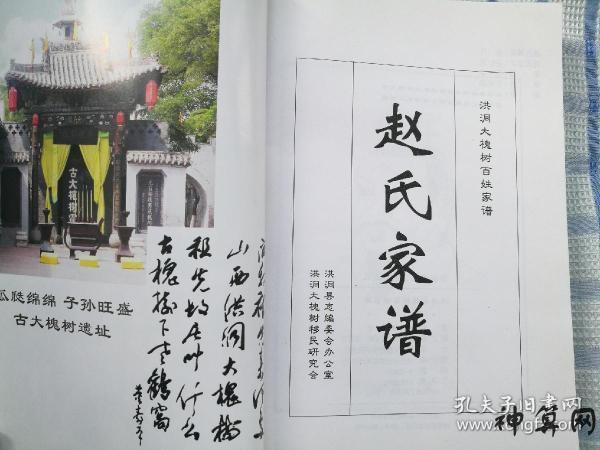 洪洞大槐树百姓家谱
赵氏家谱
洪洞县志编委会办公室
洪洞大槐树移民研究会
瓜瓞绵绵 子孙旺盛
古大槐树遗址
山西洪洞大槐树
祖先故居叫什么
古槐树下老鹳窝
古大槐树处
孔夫子旧书网
神算网